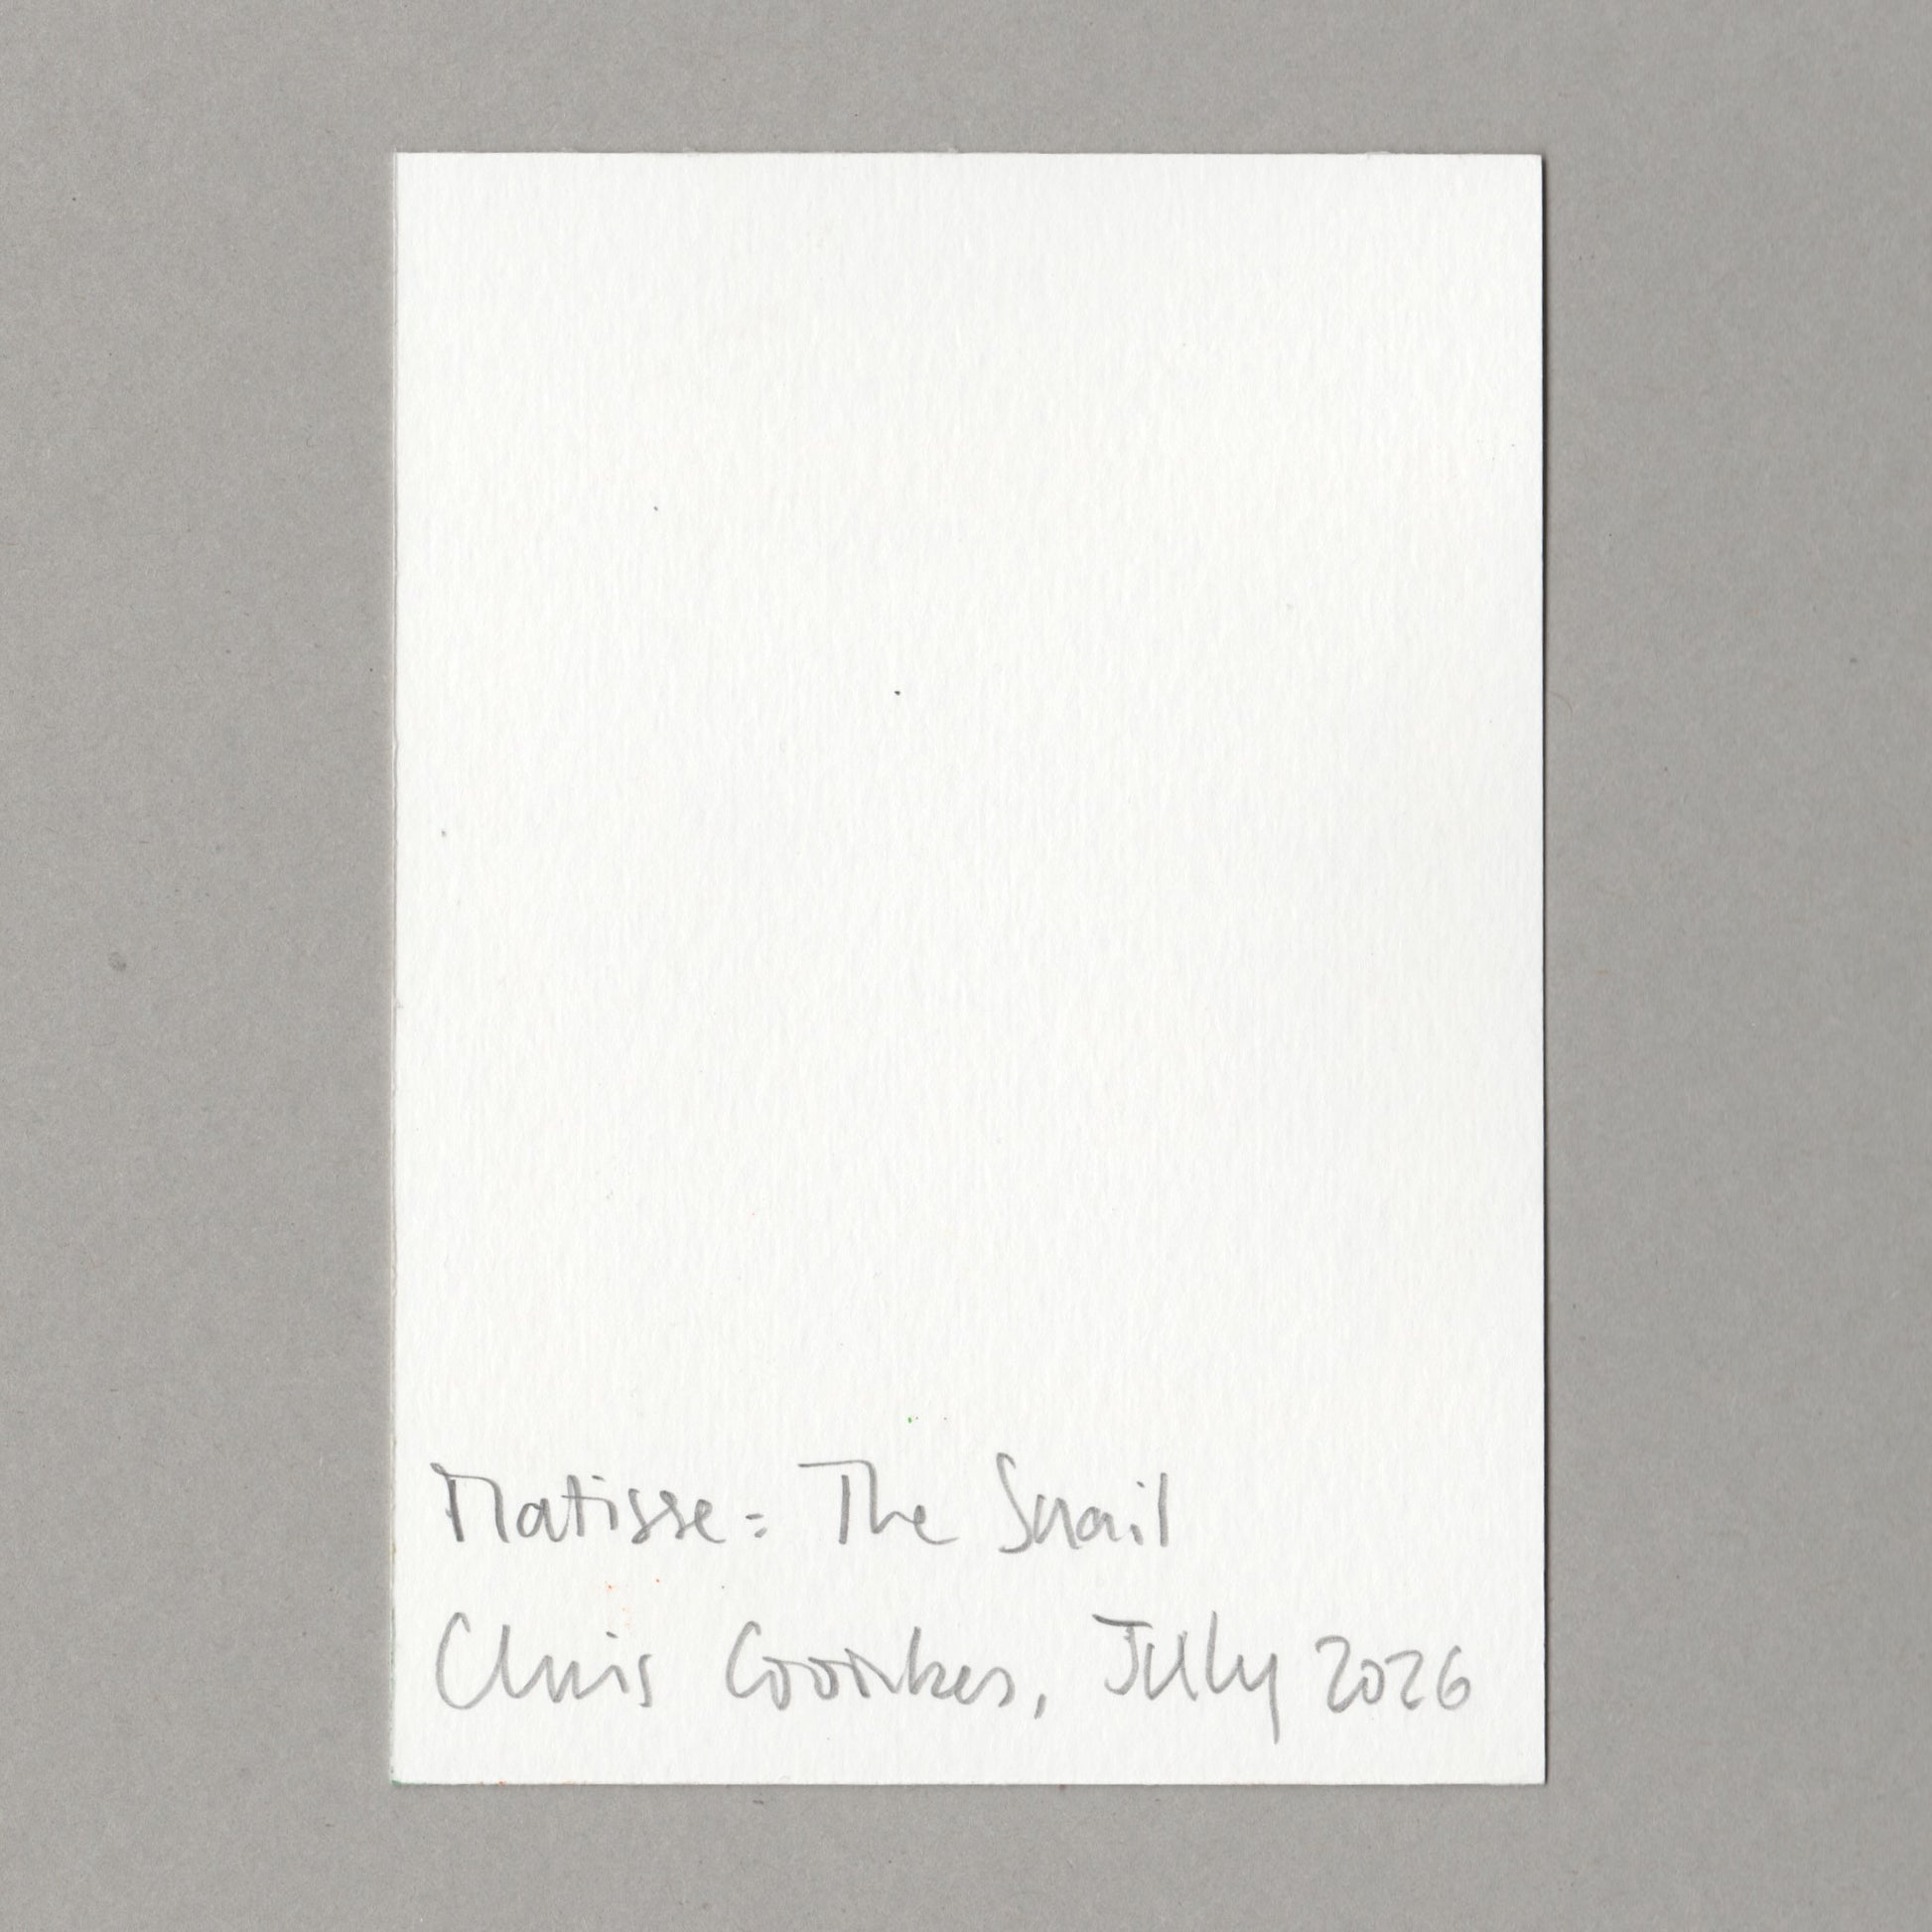 Matisse: The Snail
Chris Coorkes, July 2026